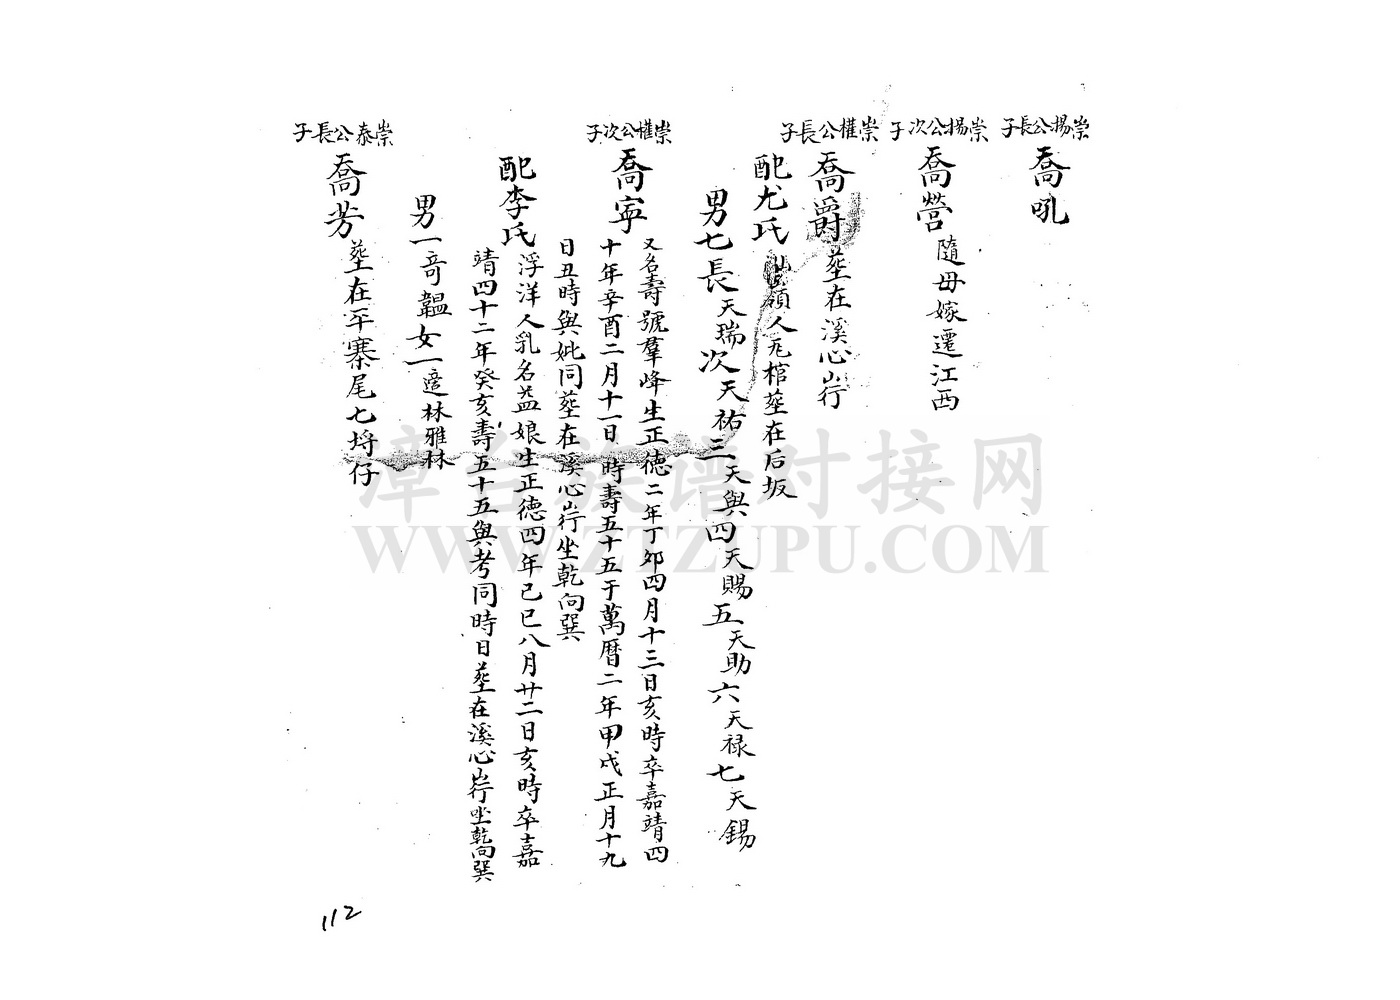 崇揚公長子
喬吼
崇揚公次子
喬營 隨母嫁遷江西
崇權公長子
喬爵 塟在溪心崎
配尤氏 嶺人冘棺塟在后坂
男七長天瑞次天祐三天與四天賜五天助六天禄七天錫
崇權公次子
喬寧 又名壽號羣峰生正德二年丁卯四月十三日亥時卒嘉靖四
十年辛酉二月十一日時壽五十五于萬曆二年甲戌正月十九
日丑時與妣同塟在溪心崎坐乾向巽
配李氏 浮洋人乳名益娘生正德四年己巳八月廿二日亥時卒嘉
靖四十二年癸亥壽五十五與考同時日塟在溪心崎坐乾向巽
男一奇韞女一適林雅林
崇泰公長子
喬芳 塟在平寨尾七埓仔
112
漳台族谱对接网
WWW.ZTZUPU.COM